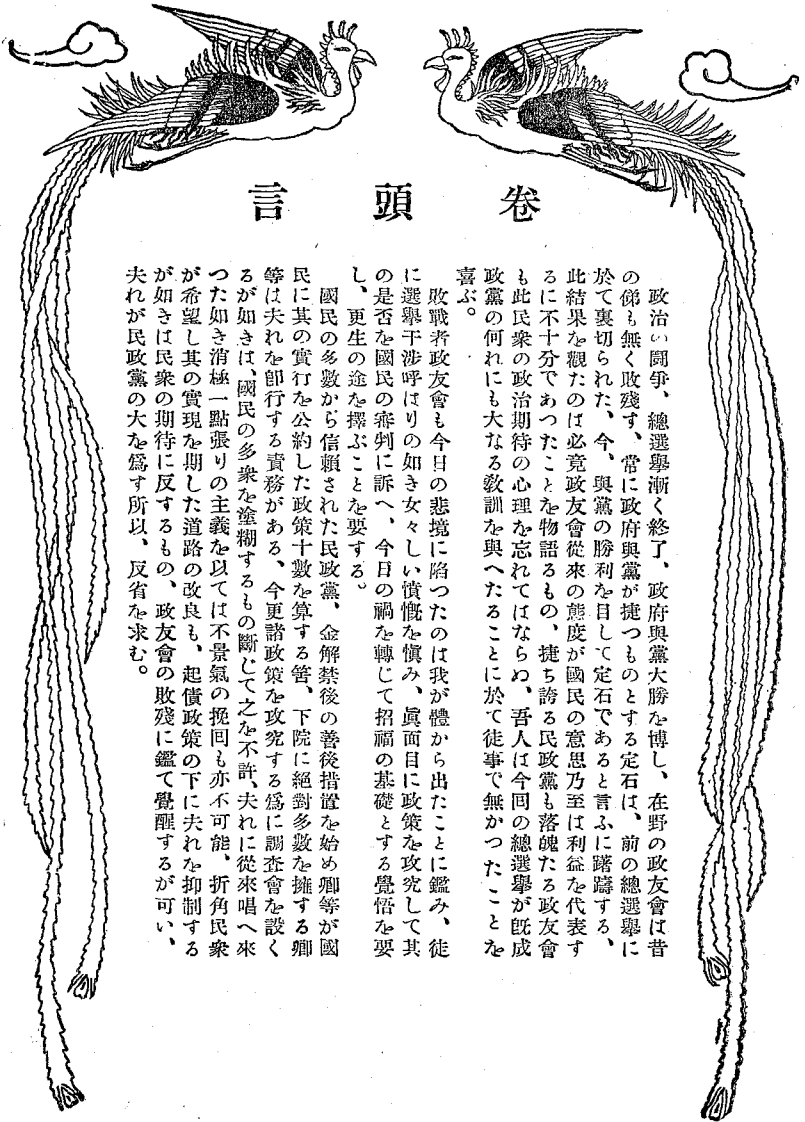 卷頭言
政治の鬪爭、總選擧漸く終了、政府與黨大勝を博し、在野の政友會は昔
の俤も無く敗殘す、常に政府與黨が捷つものとする定石は、前の總選擧に
於て裏切られた、今、與黨の勝利を目して定石であると言ふに躊躇する、
此結果を觀たのは必竟政友會從來の態度が國民の意思乃至は利益を代表す
るに不十分であつたことを物語るもの、捷ち誇る民政黨も落魄たる政友會
も此民衆の政治期待の心理を忘れてはならぬ、吾人は今回の總選擧が旣成
政黨の何れにも大なる敎訓を與へたることに於て徒事で無かつたことを
喜ぶ。
敗戰者政友會も今日の悲境に陷つたのは我が體から出たことに鑑み、徒
に選擧干涉呼はりの如き女々しい憤慨を愼み、眞面目に政策を攻究して其
の是否を國民の審判に訴へ、今日の禍を轉じて招福の基礎とする覺悟を要
し、更生の途を擇ぶことを要する。
國民の多數から信賴された民政黨、金解禁後の善後措置を始め卿等が國
民に其の實行を公約した政策十數を算する筈、下院に絕對多數を擁する卿
等は夫れを卽行する責務がある、今更諸政策を攻究する爲に調査會を設く
るが如きは、國民の多衆を塗糊するもの斷じて之を不許、夫れに從來唱へ來
つた如き消極一點張りの主義を以ては不景氣の挽回も亦不可能、折角民衆
が希望し其の實現を期した道路の改良も、起債政策の下に夫れを抑制する
が如きは民衆の期待に反するもの、政友會の敗殘に鑑て覺醒するが可い、
夫れが民政黨の大を爲す所以、反省を求む。